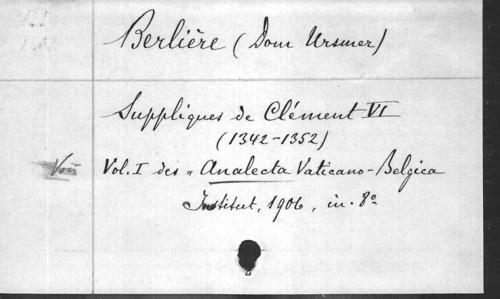 Berlière (Dom Ursmer)
Suppliques de Clément VI
(1342-1352)
Voir Vol. I des „ Analecta Vaticano-Belgica
Institut, 1906, in-8º